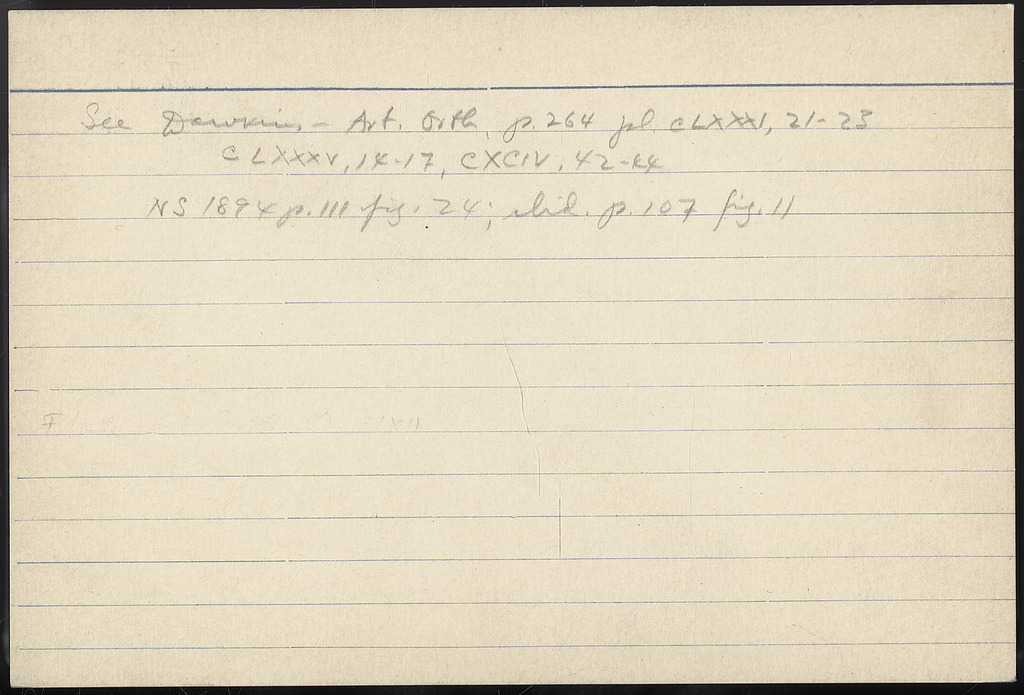 See Dawkins – Art. Orth. p. 264 pl CLXXXI, 21-23
CLXXXV, 14-17, CXCIV, 42-44
NS 1894 p. 111 fig. 24; ibid. p. 107 fig. 11